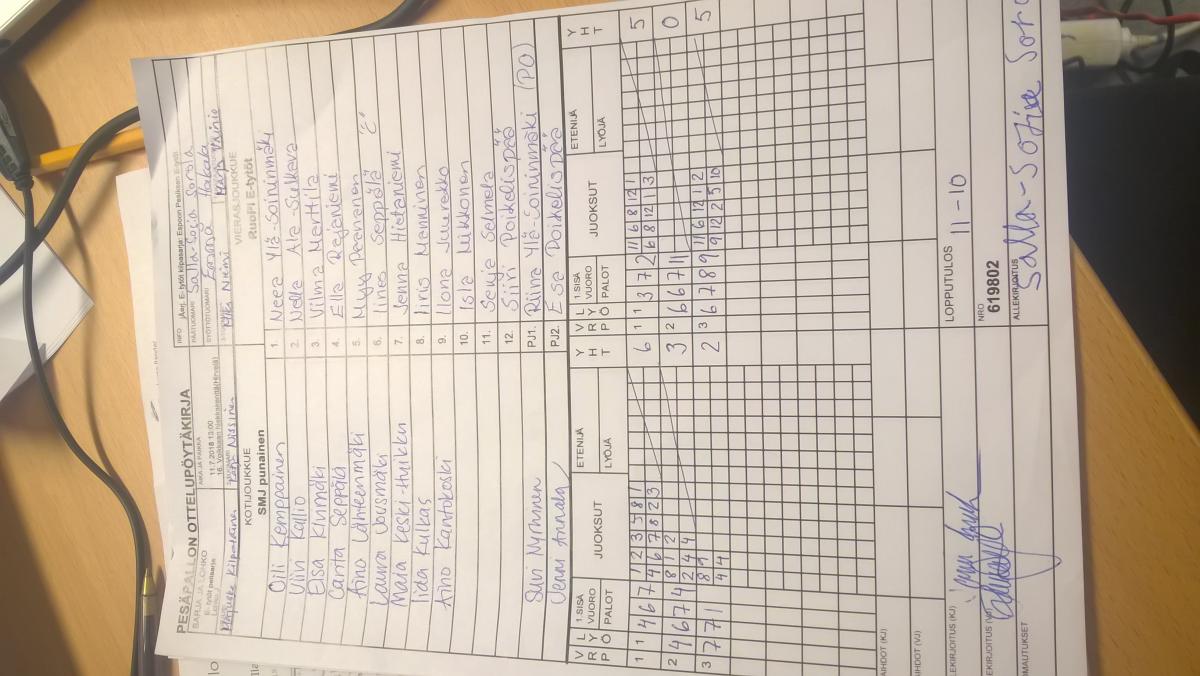 PESÄPALLON OTTELUPÖYTÄKIRJA
SARJA JA LOHKO
E-tytöt perussarja
AIKA JA PAIKKA
11.7.2018 13:00
INFO
PÄÄTUOMARI Salla-Sofia Sorola
SYÖTTÖTUOMARI Emma Hakala
KOTIJOUKKUE
SMJ punainen
VIERASJOUKKUE
RuoPi E-tytöt
Oili Komppainen 1. Neea Ylä-Soininmäki
Viivi Kallio 2. Nella Ala-Sulkava
Elsa Kivimäki 3. Vilma Merttila
Carita Seppälä 4. Ella Rajaniemi
Aino Lähteenmäki 5. Myy Paananen
Laura Jousmäki 6. Ines Seppälä "C"
Maia Keski-Hulkku 7. Jenna Hietaniemi
Iida Kulkas 8. Iiris Manninen
Aino Kantokoski 9. Ilona Juurakko
10. Isla Mikkonen
11. Senja Salmela
12. Siiri Poikelispää
Suvi Nyrhinen PJ1. Riina Ylä-Soininmäki (PO)
Jenni Annala PJ2. Esa Poikelispää
V R P L Y Ö 1.SISÄ VUORO PALOT JUOKSUT ETENIJÄ LYÖJÄ Y H T V R P L Y Ö 1.SISÄ VUORO PALOT JUOKSUT ETENIJÄ LYÖJÄ Y H T
1 1 4 6 7 1 2 3 5 8 1 6 1 1 3 7 2 11 6 8 12 1 5
4 6 7 8 2 3 6 8 12 1 3
2 4 6 7 4 8 1 2 3 2 6 6 7 11 0
2 4 4
3 7 7 1 8 9 2 3 6 7 8 9 11 6 12 1 2 5
4 4 9 12 2 5 10
VAIHDOT (KJ)
VAIHDOT (VJ)
LOPPUTULOS 11-10
ALLEKIRJOITUS (KJ)
ALLEKIRJOITUS (VJ)
NRO
619802
HUOMAUTUKSET
ALLEKIRJOITUS
Salla-Sofia Soro